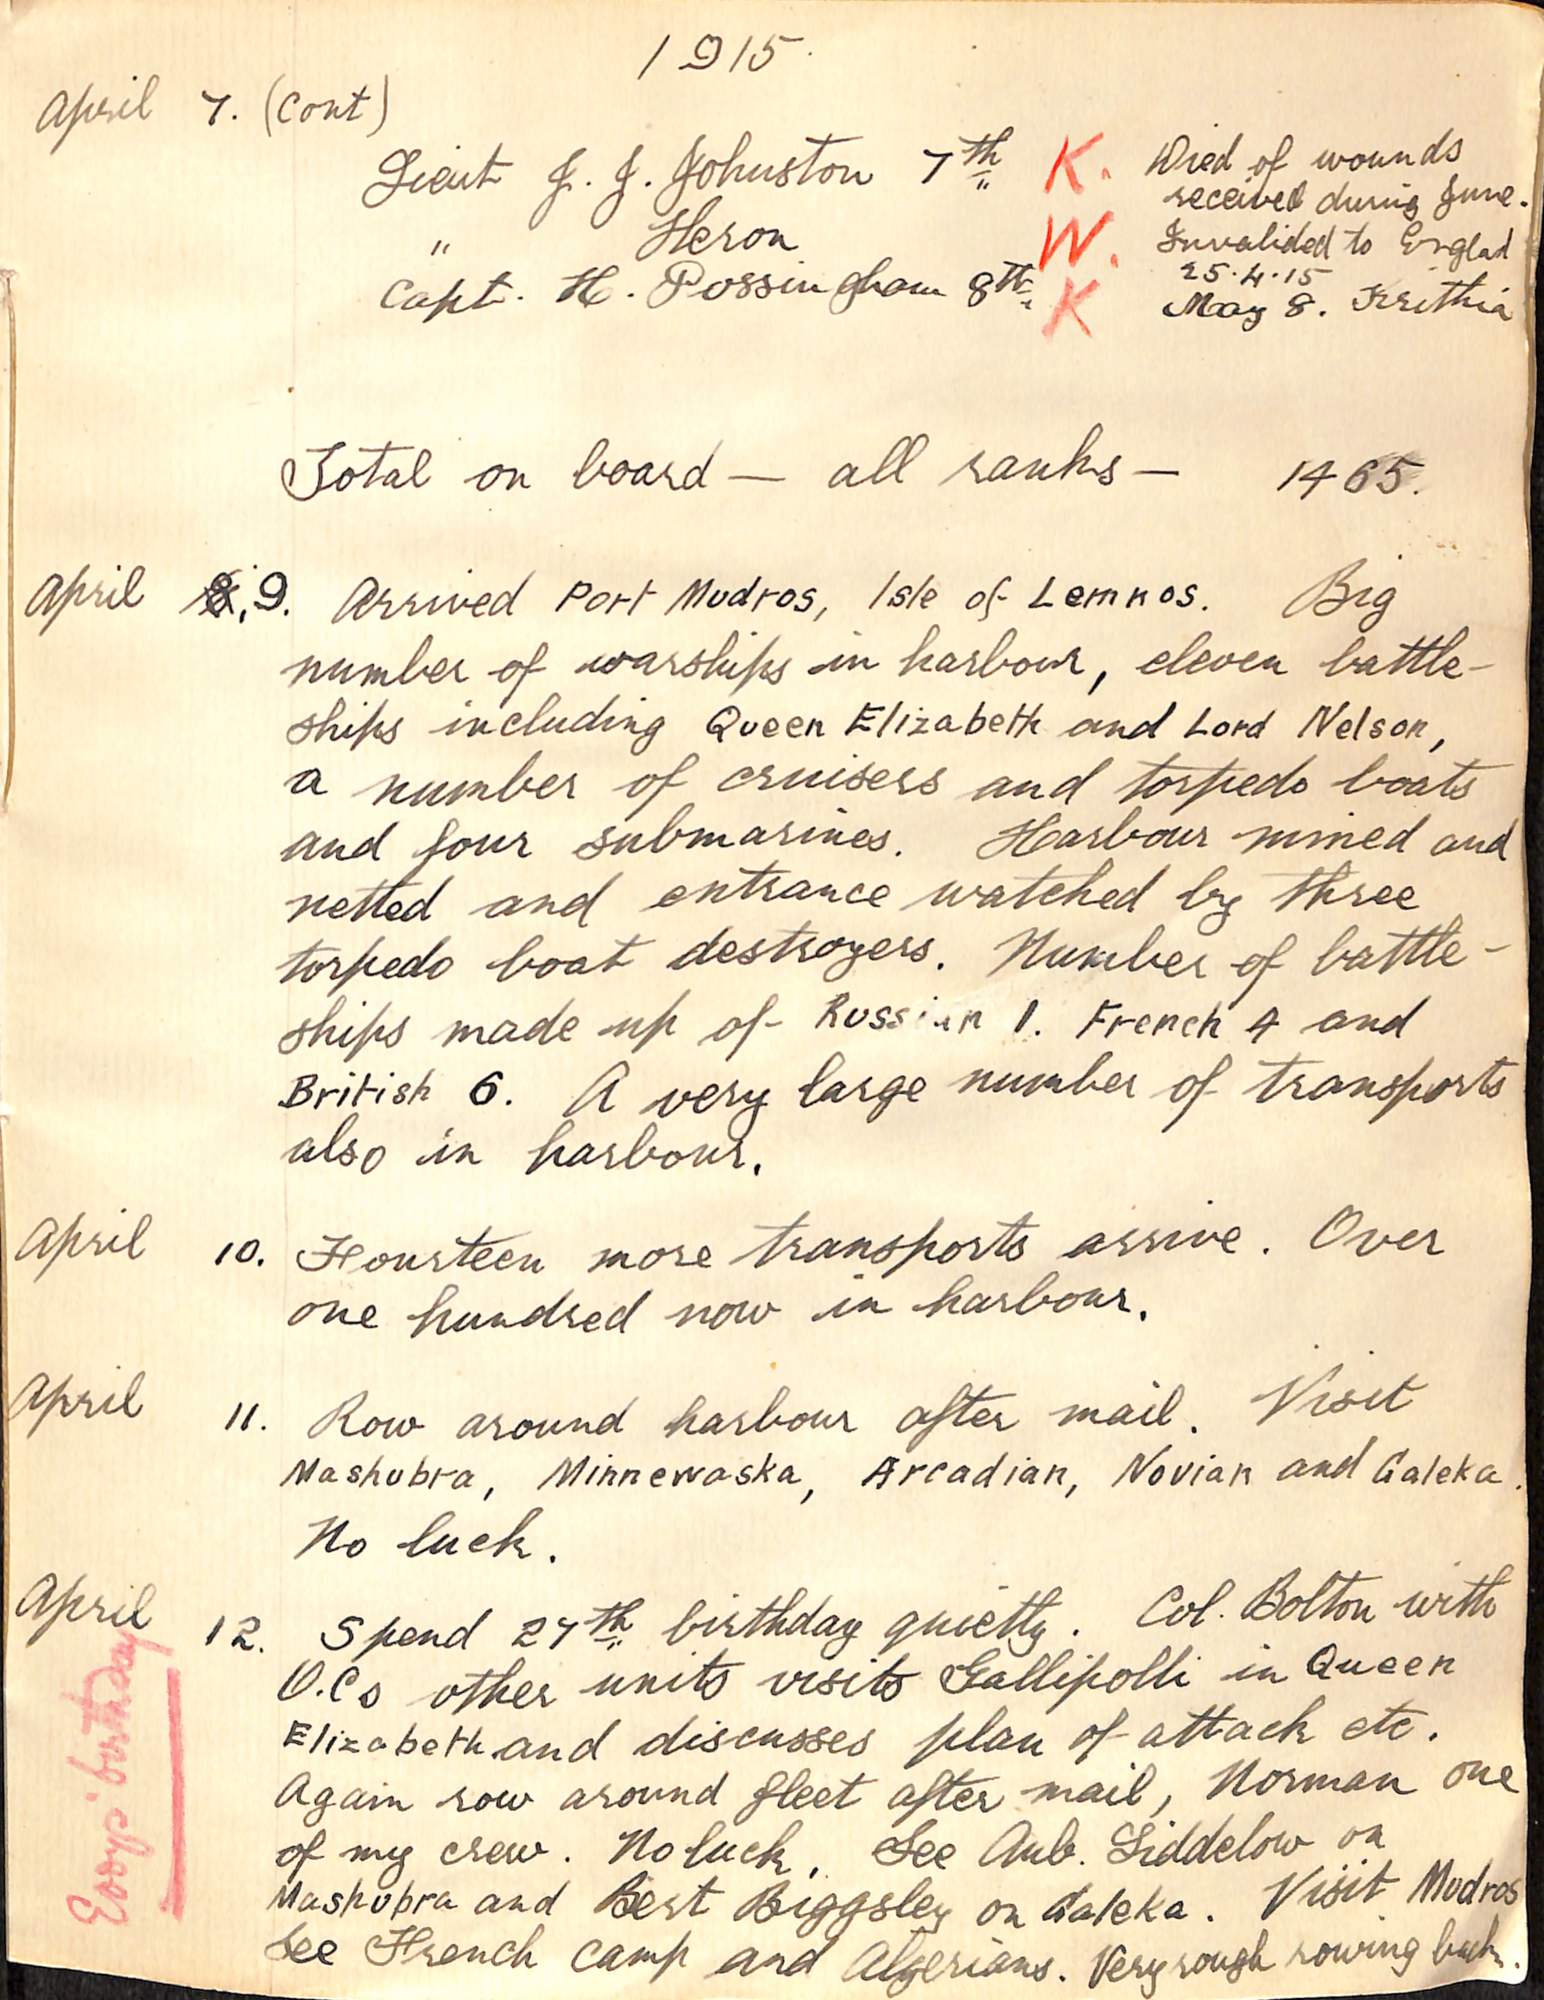 1915.
April 7. (Cont)
Lieut J. J. Johnston 7th K. Died of wounds
received during June.
" Heron W. Invalided to Englad
25.4.15
Capt. H. Possingham 8th K May 8. Krithia
Total on board — all ranks — 1465.
April 8, 9. Arrived Port Mudros, Isle of Lemnos. Big
number of warships in harbour, eleven battle-
ships including Queen Elizabeth and Lord Nelson,
a number of cruisers and torpedo boats
and four submarines. Harbour mined and
netted and entrance watched by three
torpedo boat destroyers. Number of battle-
ships made up of Russian 1. French 4 and
British 6. A very large number of transports
also in harbour.
April 10. Fourteen more transports arrive. Over
one hundred now in harbour.
April 11. Row around harbour after mail. Visit
Mashobra, Minnewaska, Arcadian, Novian and Galeka.
No luck.
April 12. Spend 27th birthday quietly. Col. Bolton with
O.Cs other units visits Gallipolli in Queen
Elizabeth and discusses plan of attack etc.
Again row around fleet after mail, Norman one
of my crew. No luck. See Aub. Liddelow on
Mashobra and Bert Biggsley on Galeka. Visit Mudros
See French camp and Algerians. Very rough rowing back.
birthday